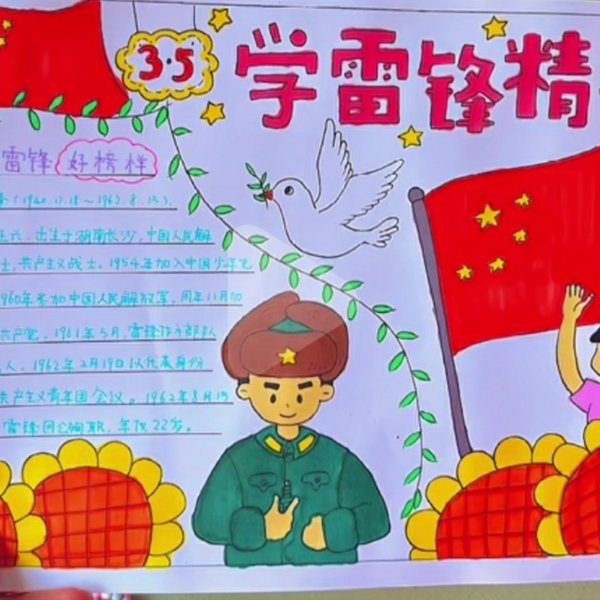 3·5
学雷锋精
雷锋好榜样
(1940.12.18～1962.8.15).
出生于湖南长沙,中国人民解
士、共产主义战士、1954年加入中国少年先
960年参加中国人民解放军,同年11月加
共产党,1961年5月,雷锋作为部队
人,1962年2月19日以代表身份
共产主义青年团会议。1962年8月15
雷锋因公殉职,年仅22岁。